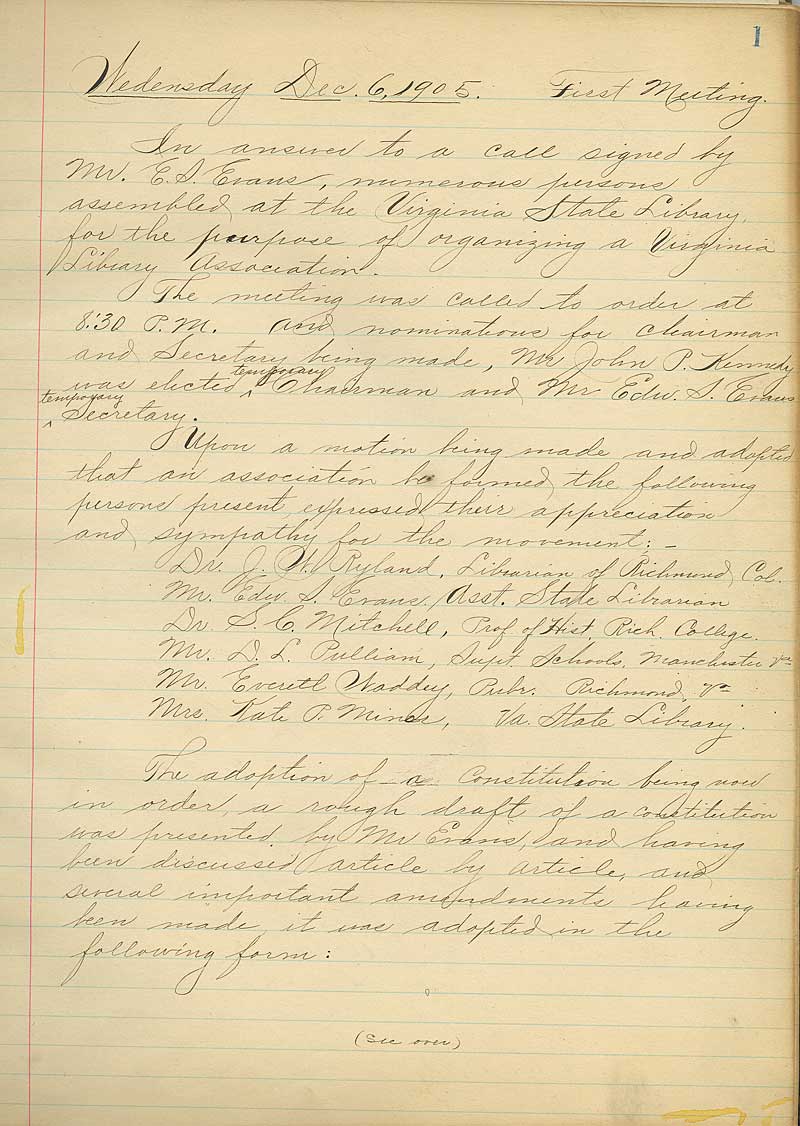 1
Wedensday Dec. 6, 1905. First Meeting.
In answer to a call signed by
Mr. E.S. Evans, numerous persons
assembled at the Virginia State Library,
for the purpose of organizing a Virginia
Library Association.
The meeting was called to order at
8:30 P.M. and nominations for chairman
and Secretary being made, Mr John P. Kennedy
was elected ^temporary Chairman and Mr Edw. S. Evans
^temporary Secretary.
Upon a motion being made and adopted
that an association be formed, the following
persons present expressed their appreciation
and sympathy for the movement: –
Dr. J. W. Ryland, Librarian of Richmond Col.
Mr. Edw. S. Evans, Asst. State Librarian
Dr S. C. Mitchell, Prof of Hist. Rich. College.
Mr. D. L. Pulliam, Supt. Schools, Manchester Va
Mr. Everett Waddey, Pubr. Richmond, Va
Mrs. Kate P. Minor, Va. State Library.
The adoption of a constitution being now
in order, a rough draft of a constitution
was presented by Mr Evans, and having
been discussed article by article, and
several important amendments having
been made, it was adopted in the
following form:
(see over)